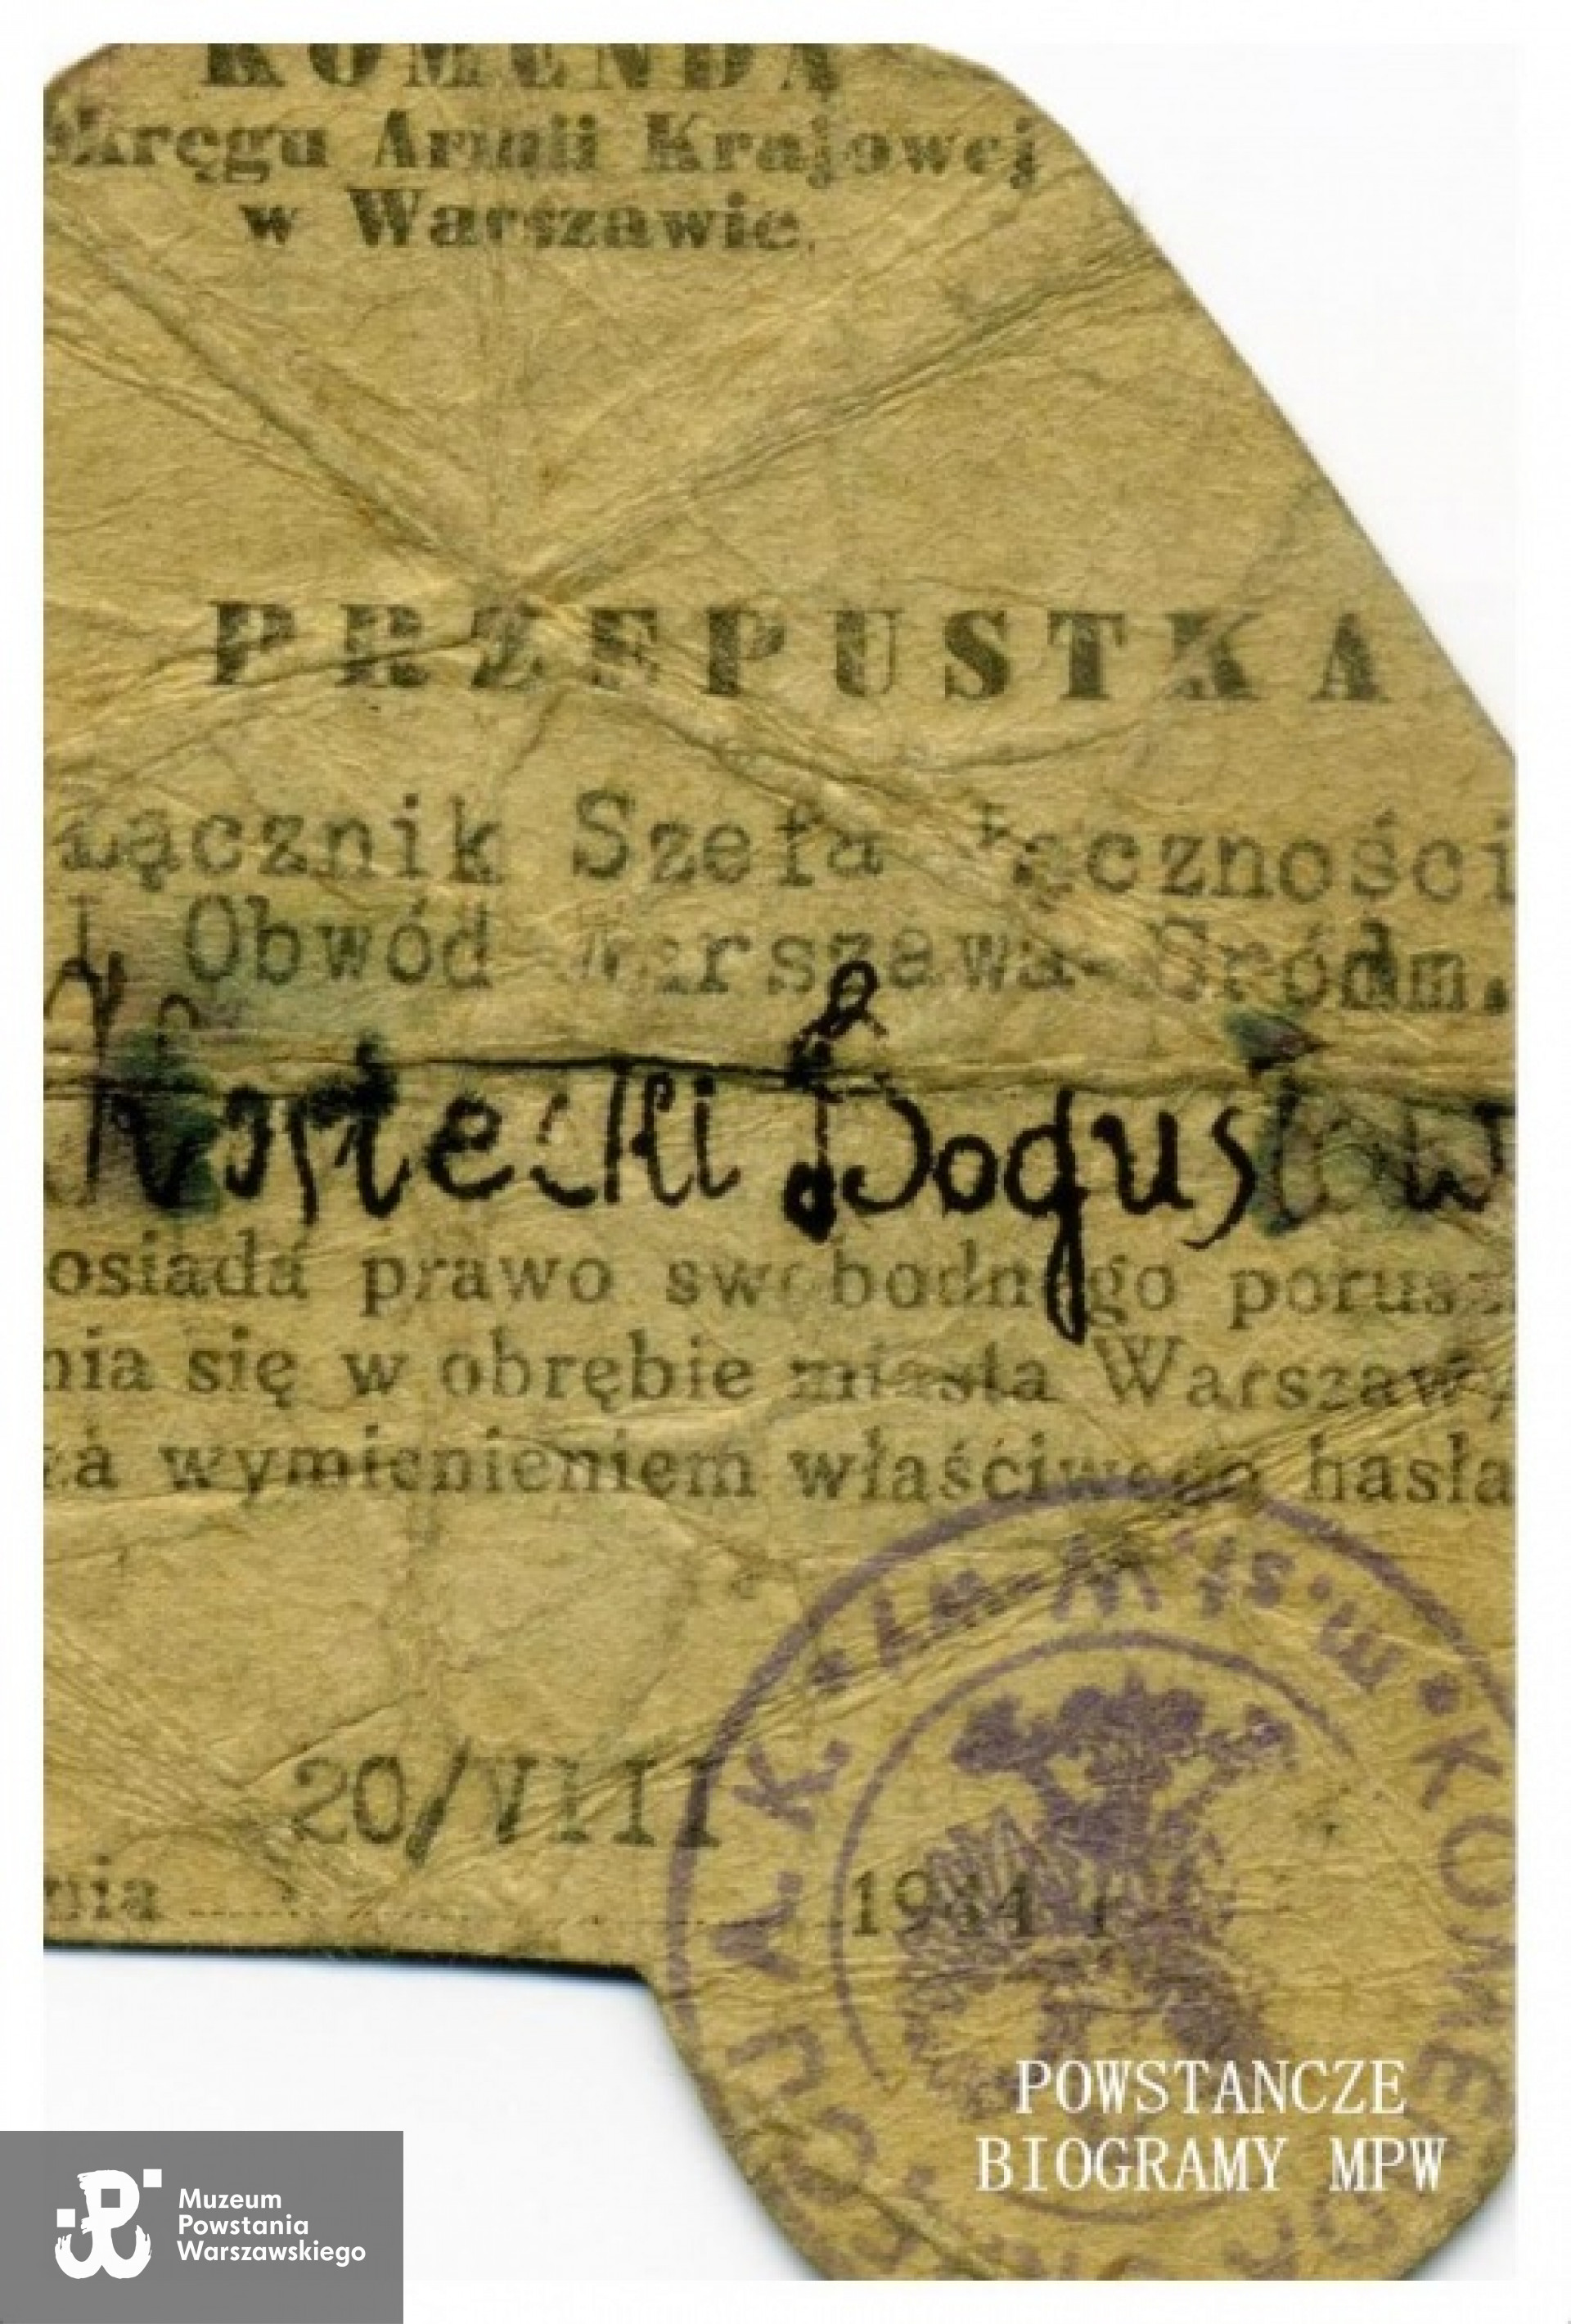 KOMENDA
Okręgu Armii Krajowej
w Warszawie.
PRZEPUSTKA
Łącznik Szefa Łączności
I Obwód Warszawa-Śródm.
Bogusław
osiada prawo swobodnego porusz
nia się w obrębie miasta Warszawy
za wymienieniem właściwego hasła
20/VIII
nia 1944 r
m. st. W-wy • A.K.
KOMEN
POWSTANCZE
BIOGRAMY MPW
Muzeum
Powstania
Warszawskiego